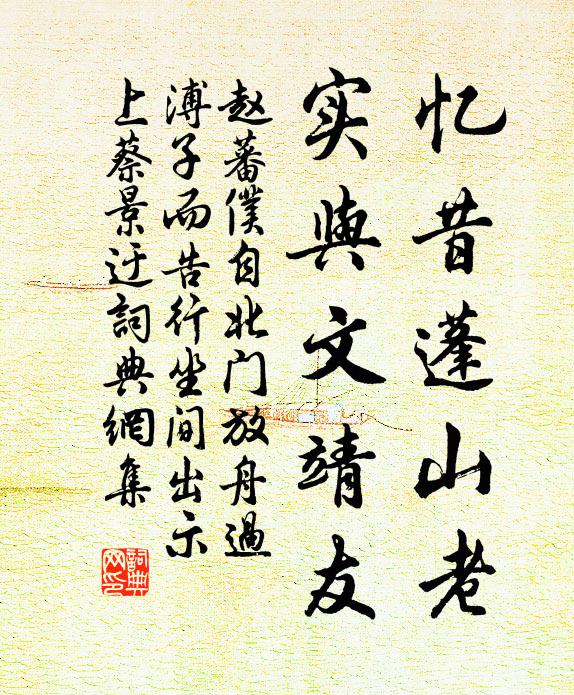 忆昔蓬山老
实與文靖友
赵蕃僕自北门放舟過
溥子而告行坐间出示
上蔡景迂詞典網集
詞典网印